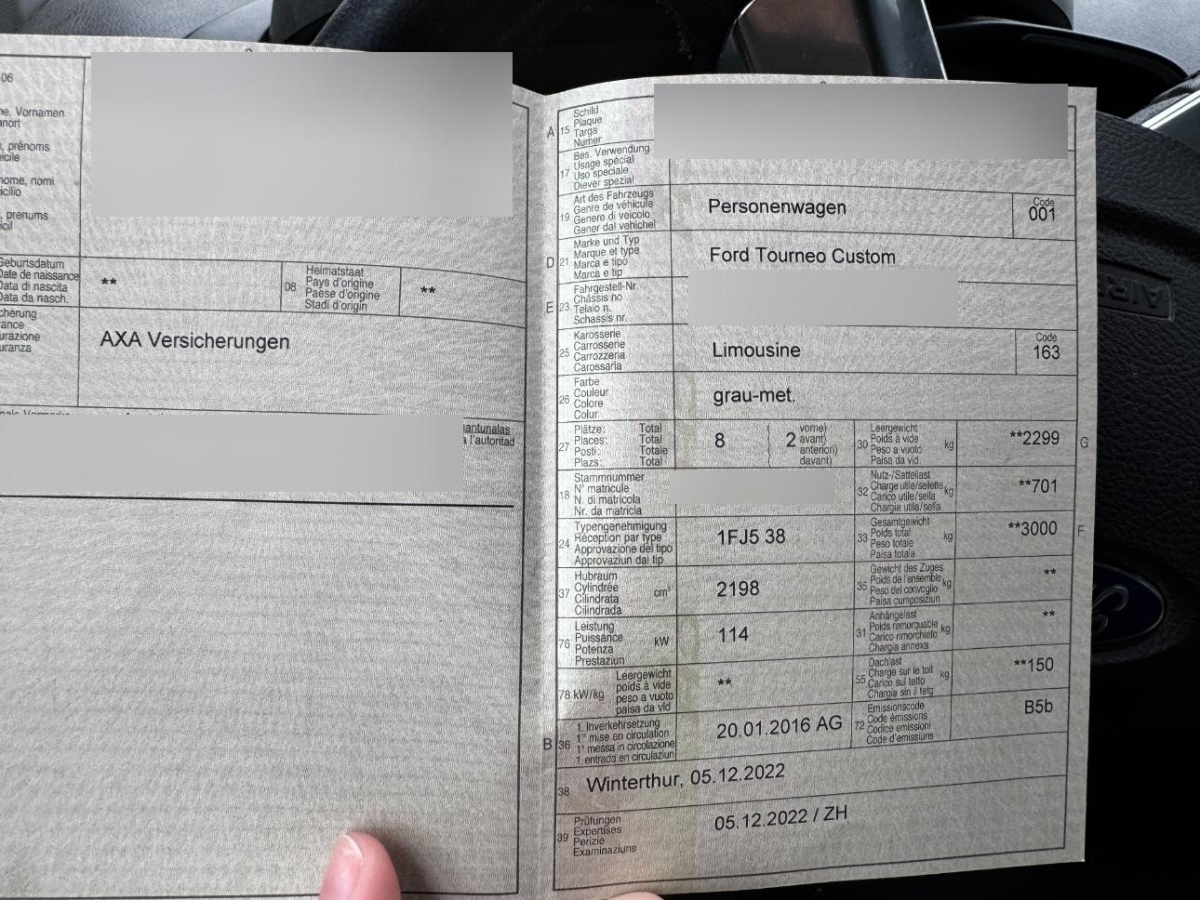 06
ne, Vornamen
nort
, prénoms
icile
nome, nomi
icilio
, prenums
icil
Geburtsdatum
Date de naissance
Data di nascita
Data da nasch.
**
08
Heimatstaat
Pays d'origine
Paese d'origine
Stadi d'origin
**
cherung
rance
urazione
uranza
AXA Versicherungen
l'autoritad
A
15
Schild
Plaque
Targa
Numer
17
Bes. Verwendung
Usage spécial
Uso speciale
Diever spezial
19
Art des Fahrzeugs
Genre de véhicule
Genere di veicolo
Gener dal vehichel
Personenwagen
Code
001
D
21
Marke und Typ
Marque et type
Marca e tipo
Marca e tip
Ford Tourneo Custom
E
23
Fahrgestell-Nr.
Châssis no
Telaio n.
Schassis nr.
25
Karosserie
Carrosserie
Carrozzeria
Carossaria
Limousine
Code
163
26
Farbe
Couleur
Colore
Colur
grau-met.
27
Plätze: Total
Places: Total
Posti: Totale
Plazs: Total
8
2
vorne)
avant)
anteriori)
davant)
30
Leergewicht
Poids à vide
Peso a vuoto
Paisa da vid
kg
**2299
G
18
Stammnummer
N° matricule
N. di matricola
Nr. da matricla
32
Nutz-/Sattellast
Charge utile/sellette
Carico utile/sella
Chargia utila/sella
kg
**701
24
Typengenehmigung
Réception par type
Approvazione del tipo
Approvaziun dal tip
1FJ5 38
33
Gesamtgewicht
Poids total
Peso totale
Paisa totala
kg
**3000
F
37
Hubraum
Cylindrée
Cilindrata
Cilindrada
cm³
2198
35
Gewicht des Zuges
Poids de l'ensemble
Peso del convoglio
Paisa cumposiziun
kg
**
76
Leistung
Puissance
Potenza
Prestaziun
kW
114
31
Anhängelast
Poids remorquable
Carico rimorchiato
Chargia annexa
kg
**
78 kW/kg
Leergewicht
poids à vide
peso a vuoto
paisa da vid
**
55
Dachlast
Charge sur le toit
Carico sul tetto
Chargia sin il tetg
kg
**150
B
36
1. Inverkehrsetzung
1re mise en circulation
1a messa in circolazione
1. entrada en circulaziun
20.01.2016 AG
72
Emissionscode
Code émissions
Codice emissioni
Code d'emissiuns
B5b
38
Winterthur, 05.12.2022
39
Prüfungen
Expertises
Perizie
Examinaziuns
05.12.2022 / ZH